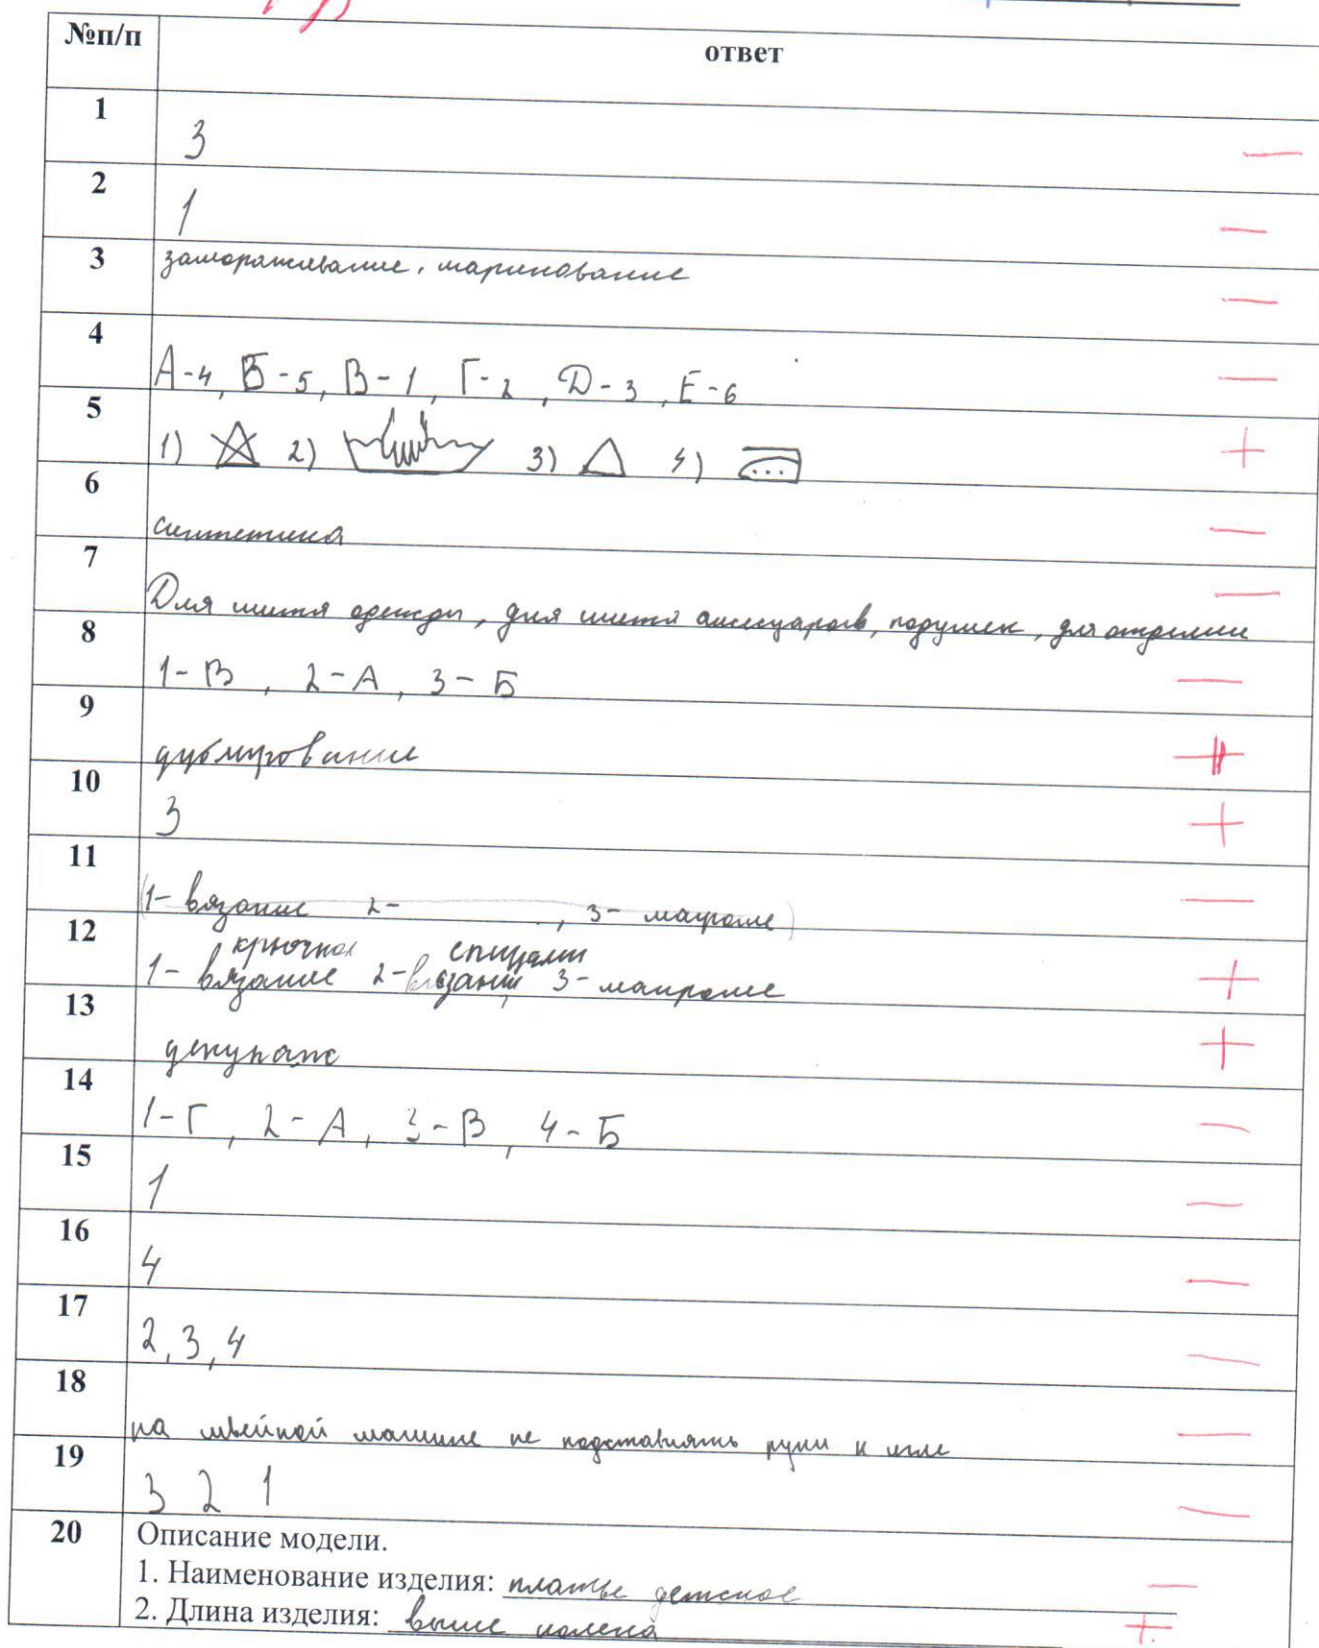 №п/п ответ
1 3 —
2 1 —
3 замораживание, маринование —
4 А-4, Б-5, В-1, Г-2, Д-3, Е-6 —
5 1) 2) 3) 4) +
6 синтетика —
7 Для шитья одежды, для шитья аксессуаров, подушек, для отделки —
8 1-В, 2-А, 3-Б —
9 дублирование +
10 3 +
11 (1- вязание 2- , 3- макраме) —
крючком спицами
12 1- вязание 2-вязание 3- макраме +
13 декупаж +
14 1-Г, 2-А, 3-В, 4-Б —
15 1 —
16 4 —
17 2, 3, 4 —
18 на швейной машине не подставлять руки к игле —
19 3 2 1 —
20 Описание модели.
1. Наименование изделия: платье детское —
2. Длина изделия: выше колена +